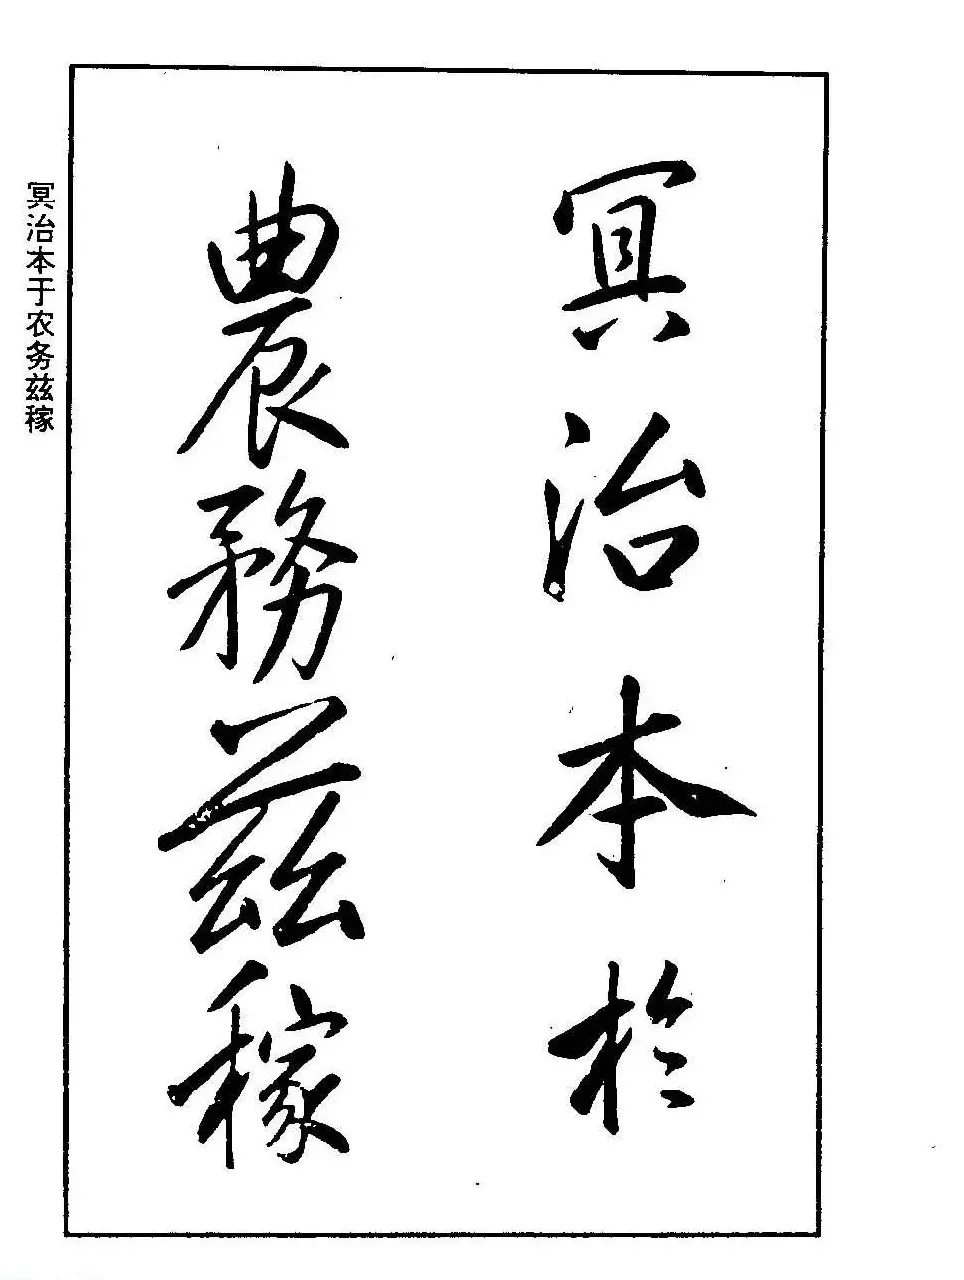 冥治本於
農務茲稼
冥治本于农务兹稼